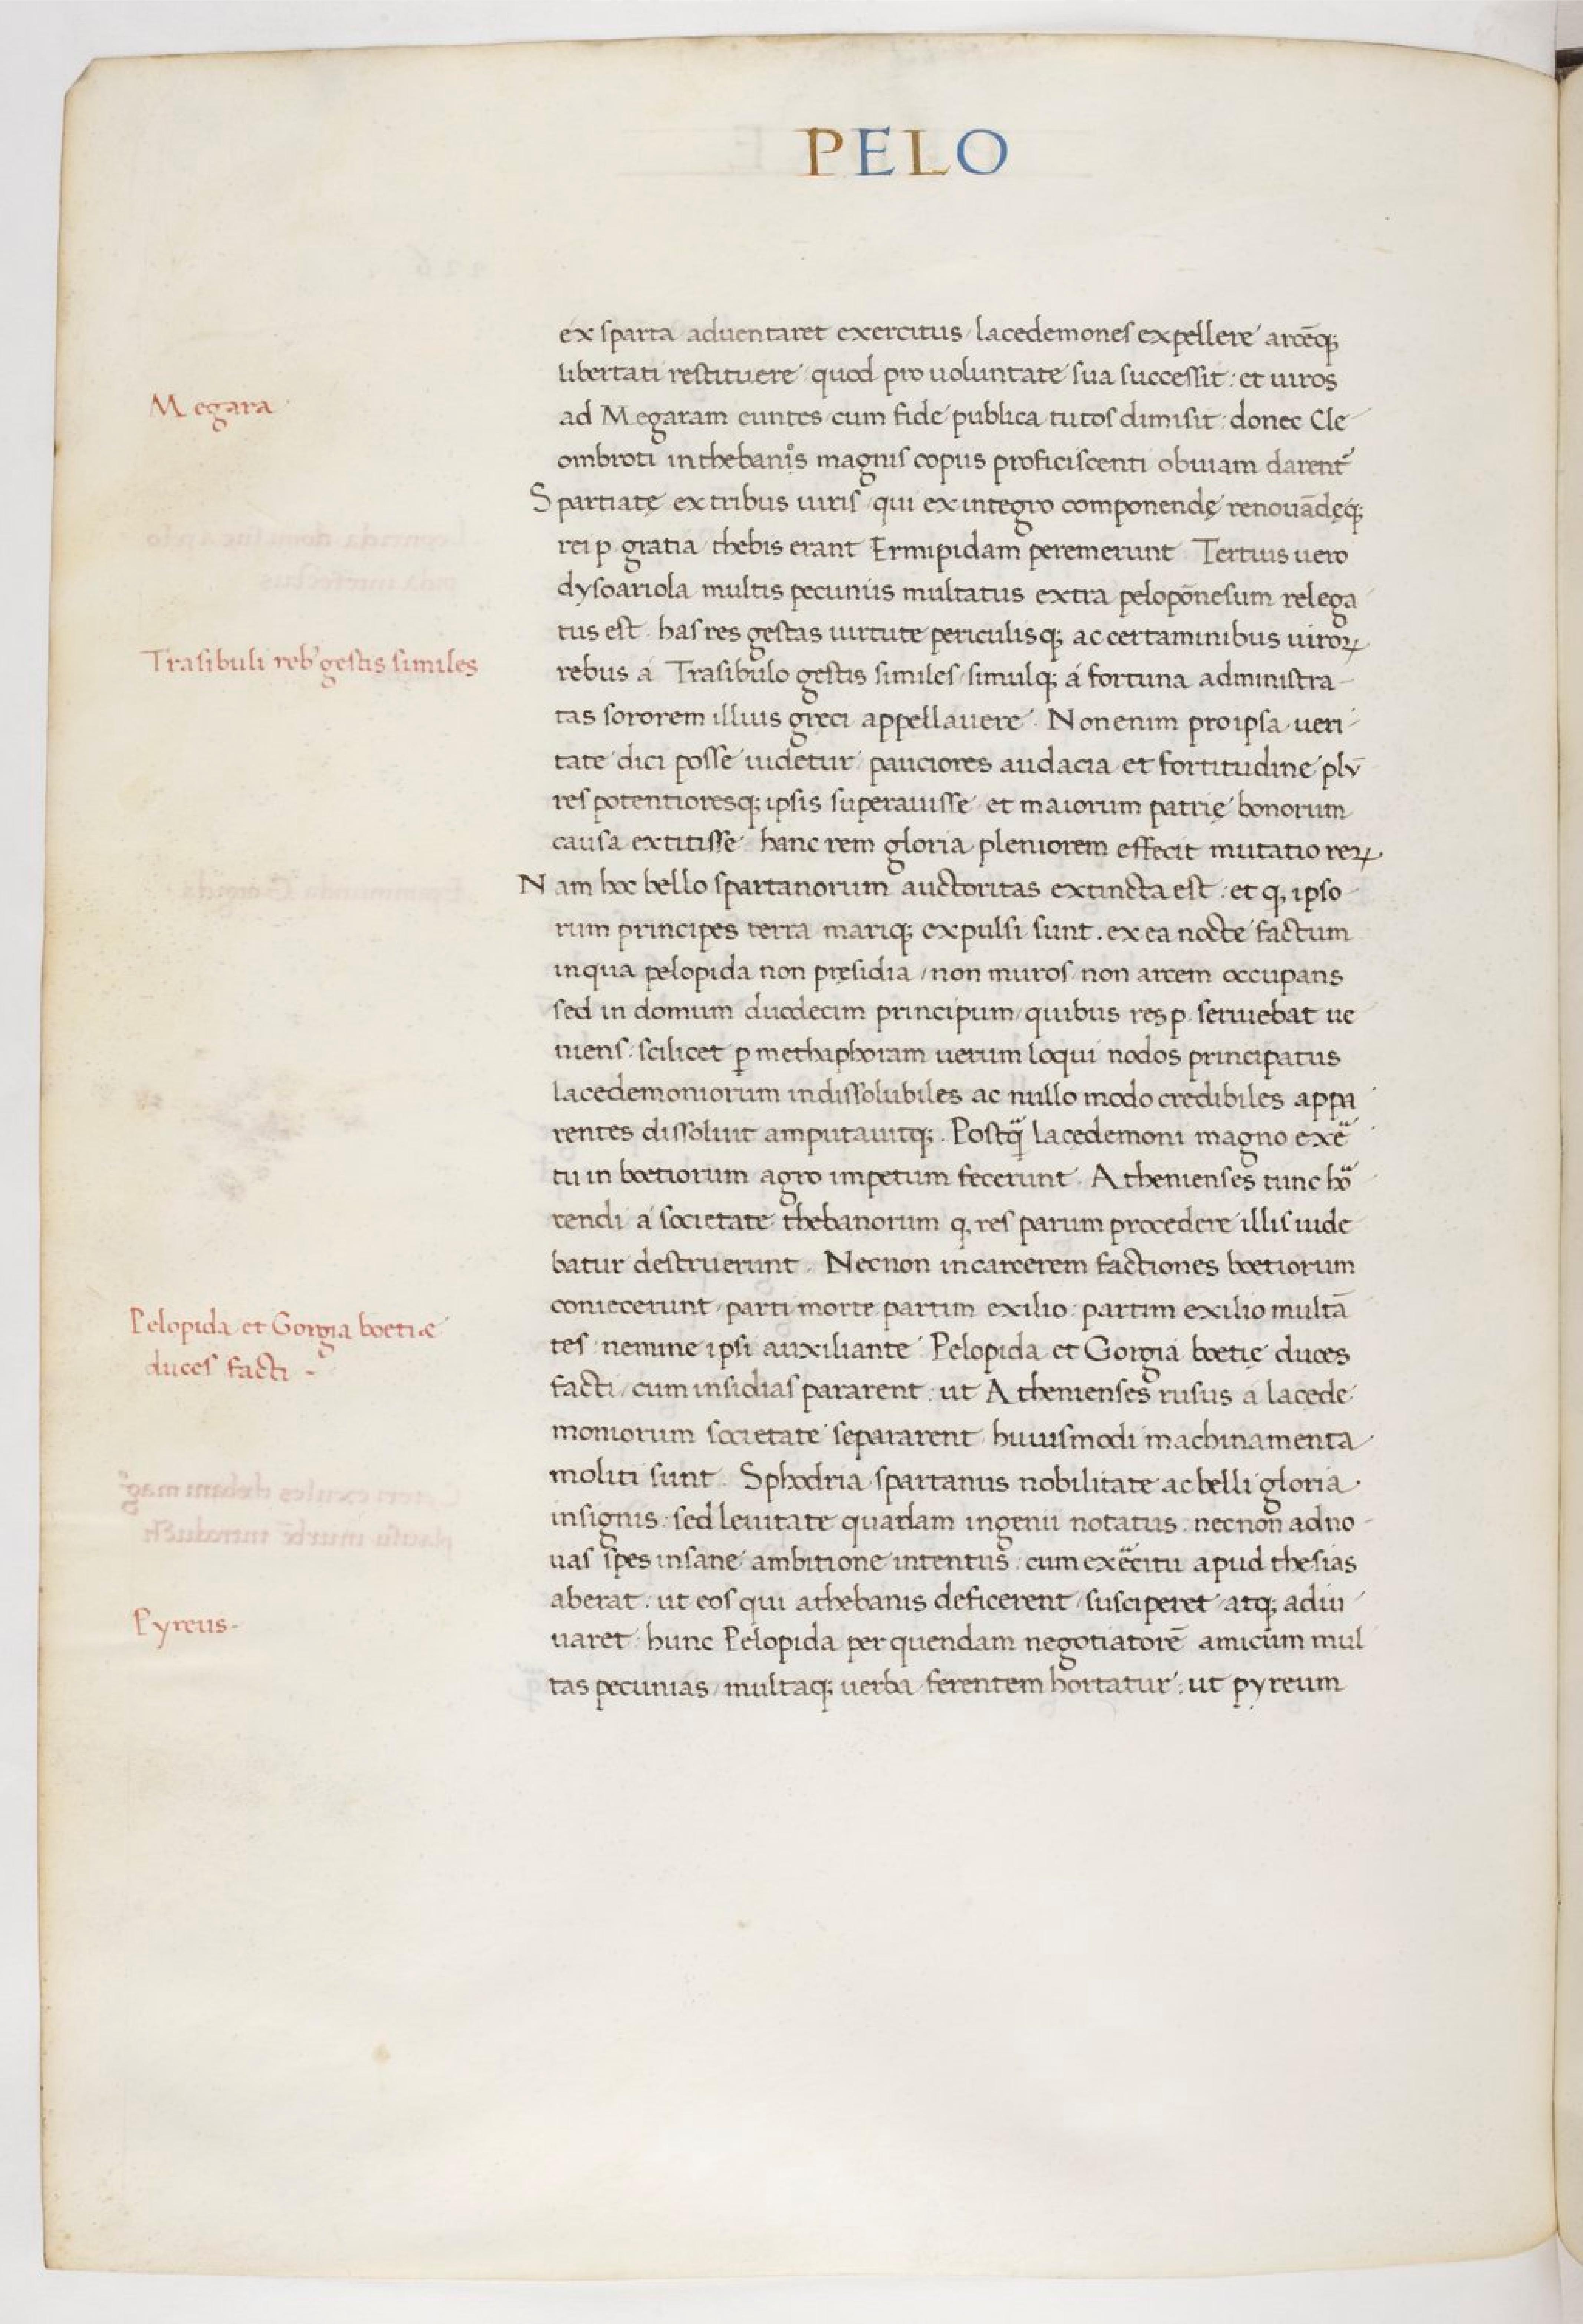 PELO
ex sparta aduentaret exercitus lacedemones expellere arcēq;
libertati restituere quod pro uoluntate sua successit : et uiros
Megara
ad Megaram euntes cum fide publica tutos dimisit : donec Cle
ombroti in thebanos magnis copiis proficiscenti obuiam darent
Spartiatę ex tribus uiris qui ex integro componendę renouādęq;
rei p. gratia thebis erant Ermipidam peremerunt . Tertius uero
dysoariola multis pecuniis multatus extra pelopōnesum relega
tus est . has res gestas uirtute periculisq; ac certaminibus uiroꝝ
Trasibuli reb' gestis similes
rebus á Trasibulo gestis similes / simulq; á fortuna administra-
tas sororem illius gręci appellauere . Non enim pro ipsa ueri-
tate dici posse uidetur pauciores audacia et fortitudine plū
res potentioresq; ipsis superauisse et maiorum patrię bonorum
causa extitisse . hanc rem gloria pleniorem effecit mutatio reꝝ.
Nam hoc bello spartanorum auctoritas extincta est : et q, ipso-
rum principes terra mariq; expulsi sunt . ex ea nocte factum
in qua pelopida non pręsidia / non muros non arcem occupans
sed in domum duodecim principum / quibus res p. seruiebat ue
niens : scilicet ꝑ methaphoram uerum loqui nodos principatus
lacedemoniorum indissolubiles ac nullo modo credibiles appa
rentes dissoluit amputauitq; . Postq̄ lacedemoni magno exē
tu in boetiorum agro impetum fecerunt . Athenienses tunc ho
rendi á societate thebanorum q, res parum procedere illis uide
batur destruerunt . Necnon in carcerem factiones boetiorum
coniecerunt / parti morte partim exilio : partim exilio multā
Pelopida et Gorgia boetiæ
duces facti -
tes : nemine ipsi auxiliante . Pelopida et Gorgia boetię duces
facti / cum insidias pararent : ut Athenienses rusus a lacede
moniorum societate separarent huiusmodi machinamenta
moliti sunt . Sphodria spartanus nobilitate ac belli gloria
insignis : sed leuitate quadam ingenii notatus : necnon ad no-
uas spes insane ambitione intentus : cum exēcitu apud thesias
aberat : ut eos qui a thebanis deficerent / susciperet / atq; adiu
Pyreus-
uaret : hunc Pelopida per quendam negotiatorē amicum mul
tas pecunias / multaq; uerba ferentem hortatur : ut pyreum